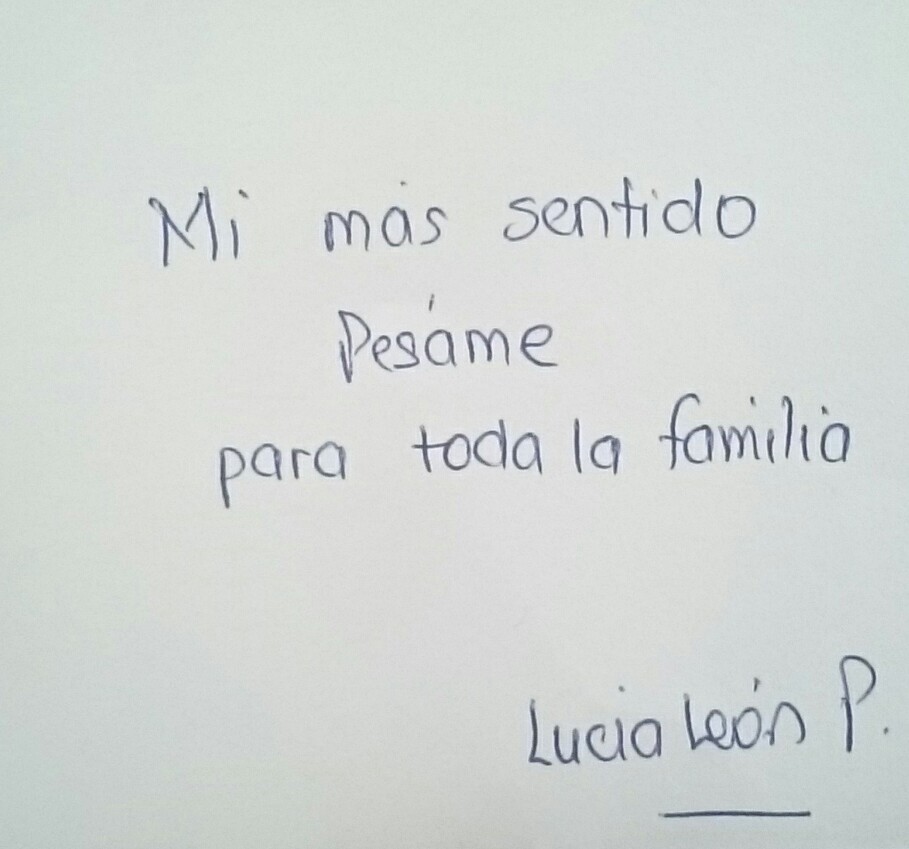 Mi más sentido
Pesáme
para toda la familia
Lucia León P.